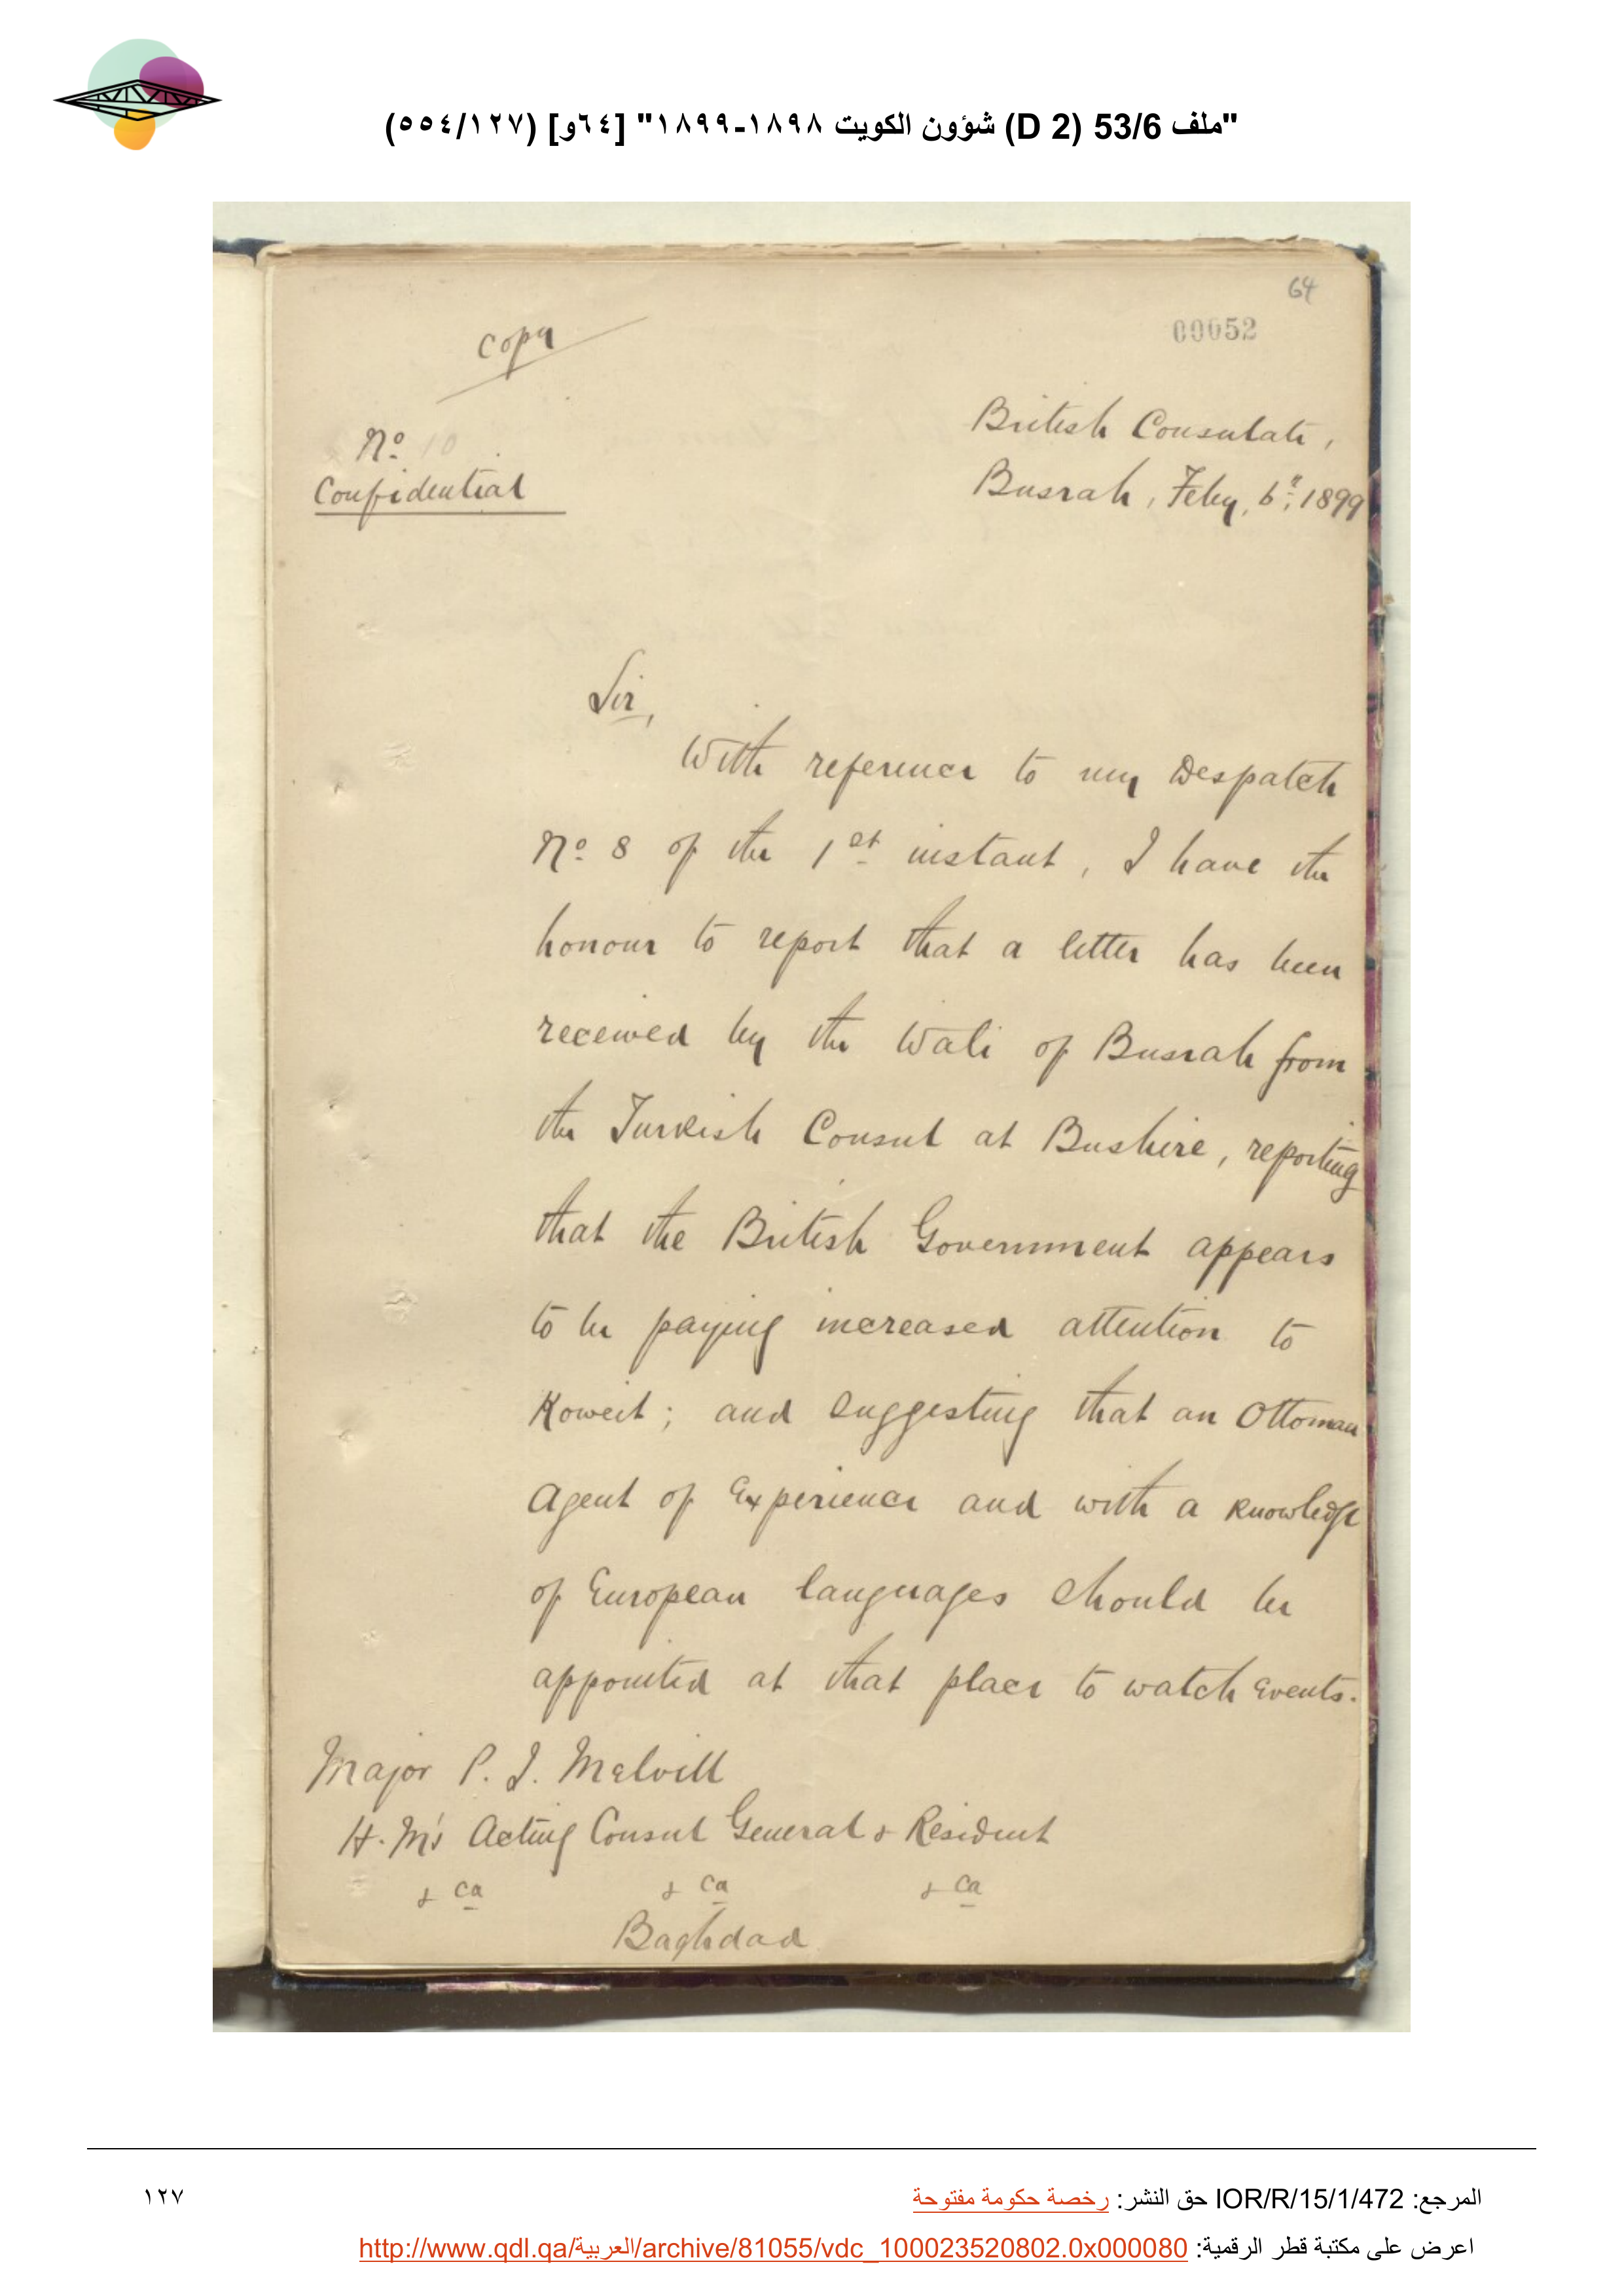 "ملف 53/6 (D 2) شؤون الكويت ١٨٩٨-١٨٩٩" [٦٤و] (١٢٧/٥٥٤)
64
00052
Copy
No. 10
Confidential
British Consulate,
Busrah, Feby, 6th, 1899
Sir,
With reference to my Despatch
No. 8 of the 1st instant, I have the
honour to report that a letter has been
received by the Wali of Busrah from
the Turkish Consul at Bushire, reporting
that the British Government appears
to be paying increased attention to
Koweit; and suggesting that an Ottoman
Agent of Experience and with a knowledge
of European languages should be
appointed at that place to watch events.
Major P. J. Melvill
H. M's Acting Consul General & Resident
&ca &ca &ca
Baghdad
المرجع: IOR/R/15/1/472 حق النشر: رخصة حكومة مفتوحة
١٢٧
اعرض على مكتبة قطر الرقمية: http://www.qdl.qa/العربية/archive/81055/vdc_100023520802.0x000080